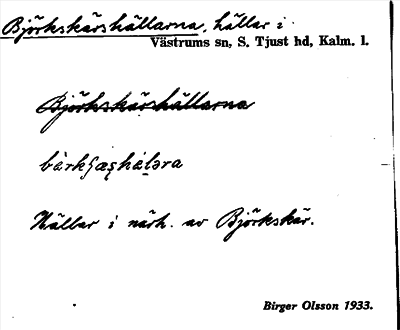 Björkskärshällarna, hällar i
Västrums sn, S. Tjust hd, Kalm. l.
Björkskärshällarna
Hällar i närh. av Björkskär.
Birger Olsson 1933.